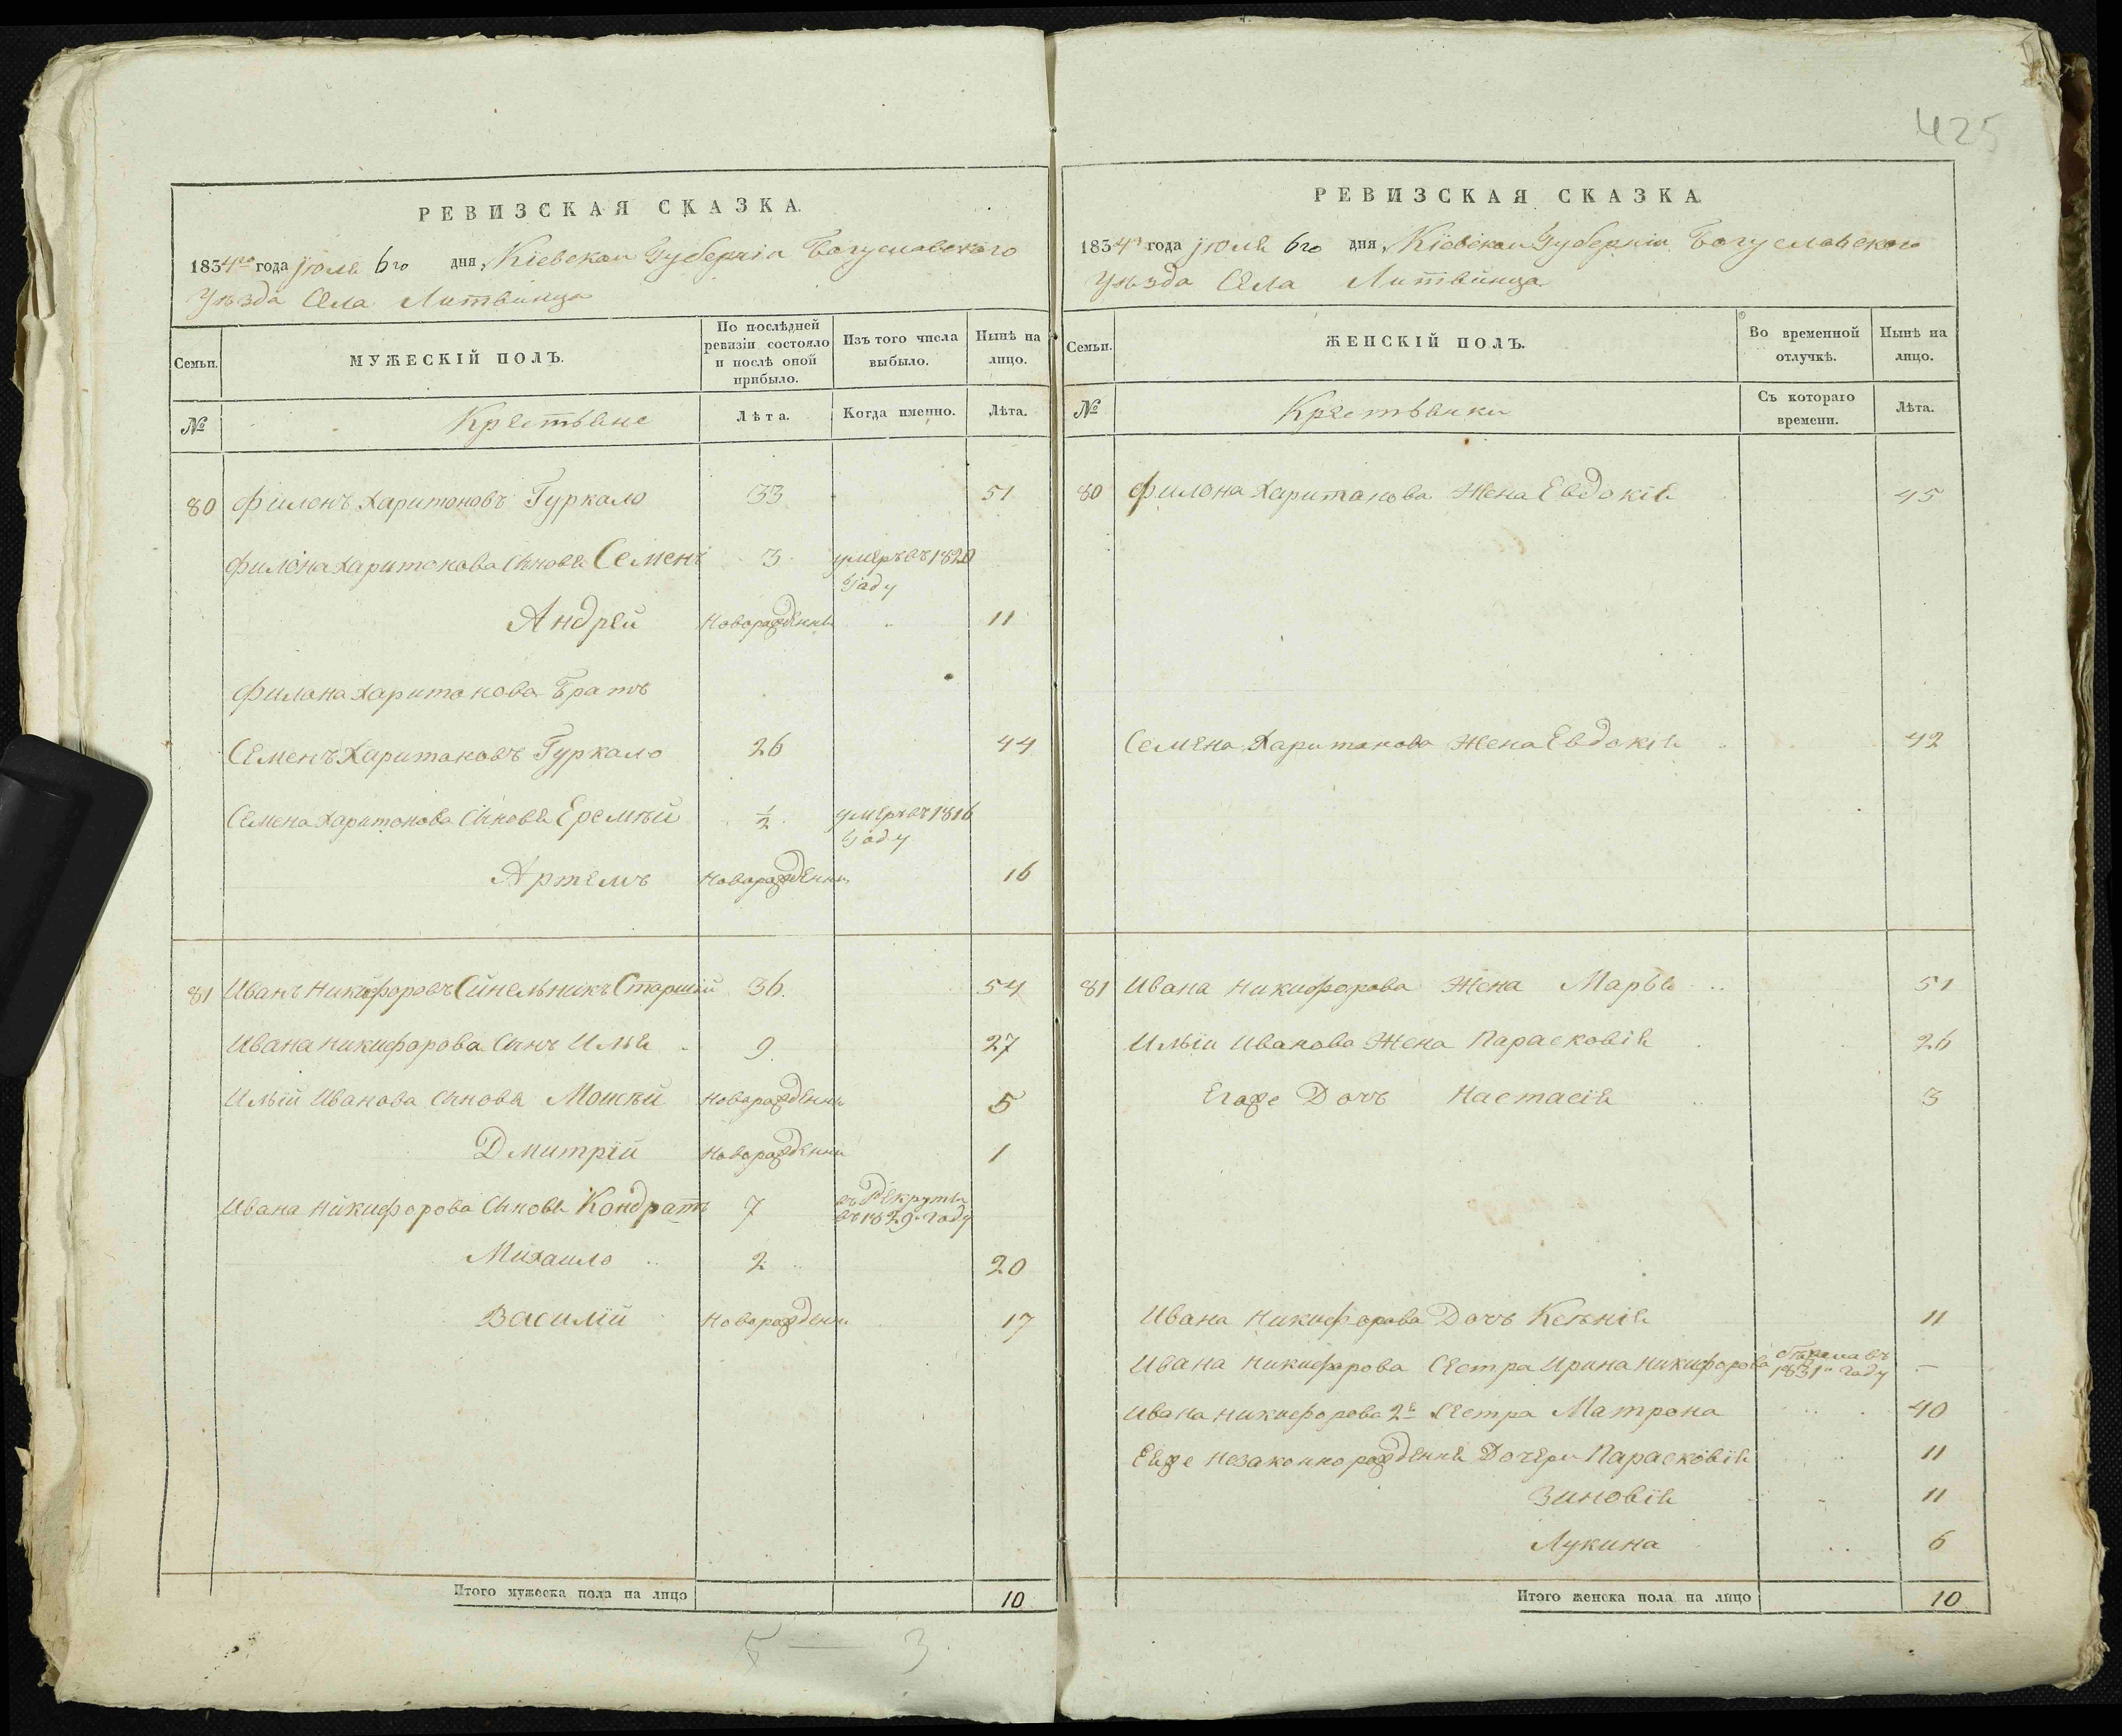 425
РЕВИЗСКАЯ СКАЗКА.
1834го года Јюля 6го дня, Кіевской Губерніи Богуславского
Уѣзда Села Литвинца
Семьи.
МУЖЕСКІЙ ПОЛЪ.
По послѣдней ревизіи состояло и послѣ оной прибыло.
Изъ того числа выбыло.
Нынѣ на лицо.
№
Крестьяне
Лѣта.
Когда именно.
Лѣта.
80 Филонъ Харитоновъ Гуркало 33 51
Филона Харитонова Сыновя Семенъ 3 умеръ въ 1820
году
Андрей Новорожденны 11
Филона Харитонова Братъ
Семенъ Харитоновъ Гуркало 26 44
Семена Харитонова Сыновя Еремѣй ½ умеръ въ 1816
году
Артемъ Новорожденны 16
81 Иванъ Никифоровъ Синельникъ Старшій 36 54
Ивана Никифорова Сынъ Илья 9 27
Ильи Иванова Сыновя Мойсѣй Новорожденны 5
Дмитрій Новорожденны 1
Ивана Никифорова Сыновя Кондратъ 7 въ Рекруты
въ 1829 году
Михаило 2 20
Василій Новорожденны 17
Итого мужеска пола на лицо 10
5 — 3
РЕВИЗСКАЯ СКАЗКА.
1834го года Јюля 6го дня, Кіевской Губерніи Богуславского
Уѣзда Села Литвинца
Семьи.
ЖЕНСКІЙ ПОЛЪ.
Во временной отлучкѣ.
Нынѣ на лицо.
№
Крестьянки
Съ котораго времени.
Лѣта.
80 Филона Харитонова Жена Евдокія 45
Семена Харитонова Жена Евдокія 42
81 Ивана Никифорова Жена Марья 51
Ильи Иванова Жена Парасковія 26
Егоже Дочь Настасія 3
Ивана Никифорова Дочь Ксенія 11
Ивана Никифорова Сестра Ирина Никифорова въ
1831 году —
Ивана Никифорова 2я Сестра Матрона 40
Еяже незаконнорождення Дочери Парасковія 11
Зиновія 11
Лукина 6
Итого женска пола на лицо 10